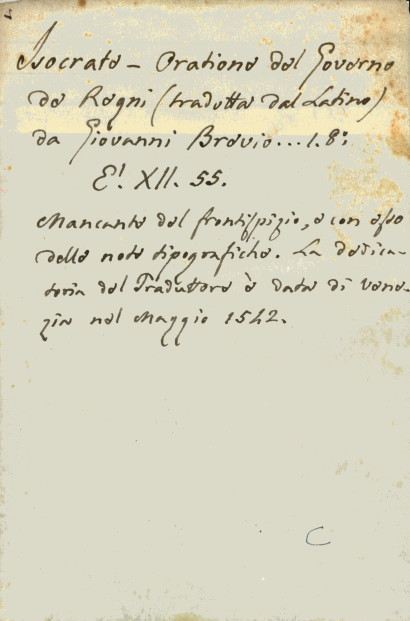 Isocrate – Oratione del Governo
de Regni (tradutta dal Latino)
da Giovanni Brevio... 1.8:
E! XII. 55.
Mancante del frontispizio, e con esso
delle note tipografiche. La dedica-
toria del Traduttore è data di Vene-
zia nel Maggio 1542.
C